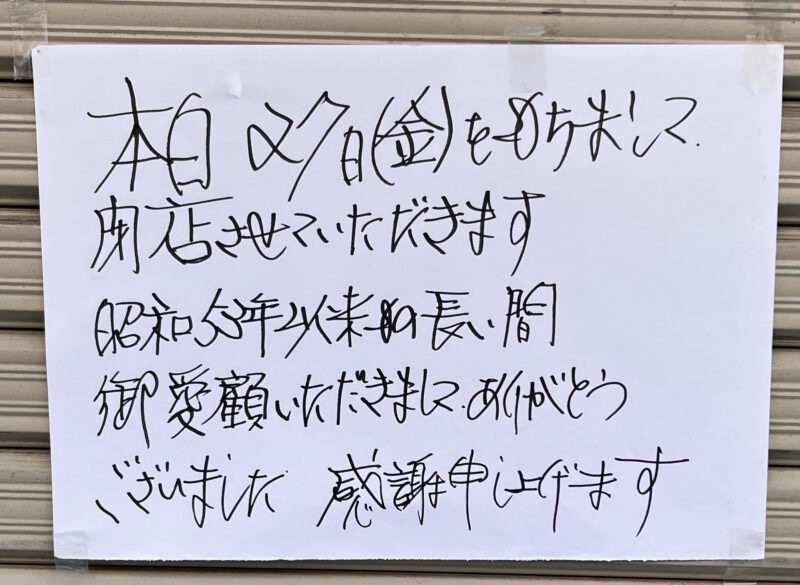 本日27日(金)をもちまして
閉店させていただきます
昭和53年以来の長い間
御愛顧いただきまして、ありがとう
ございました 感謝申し上げます